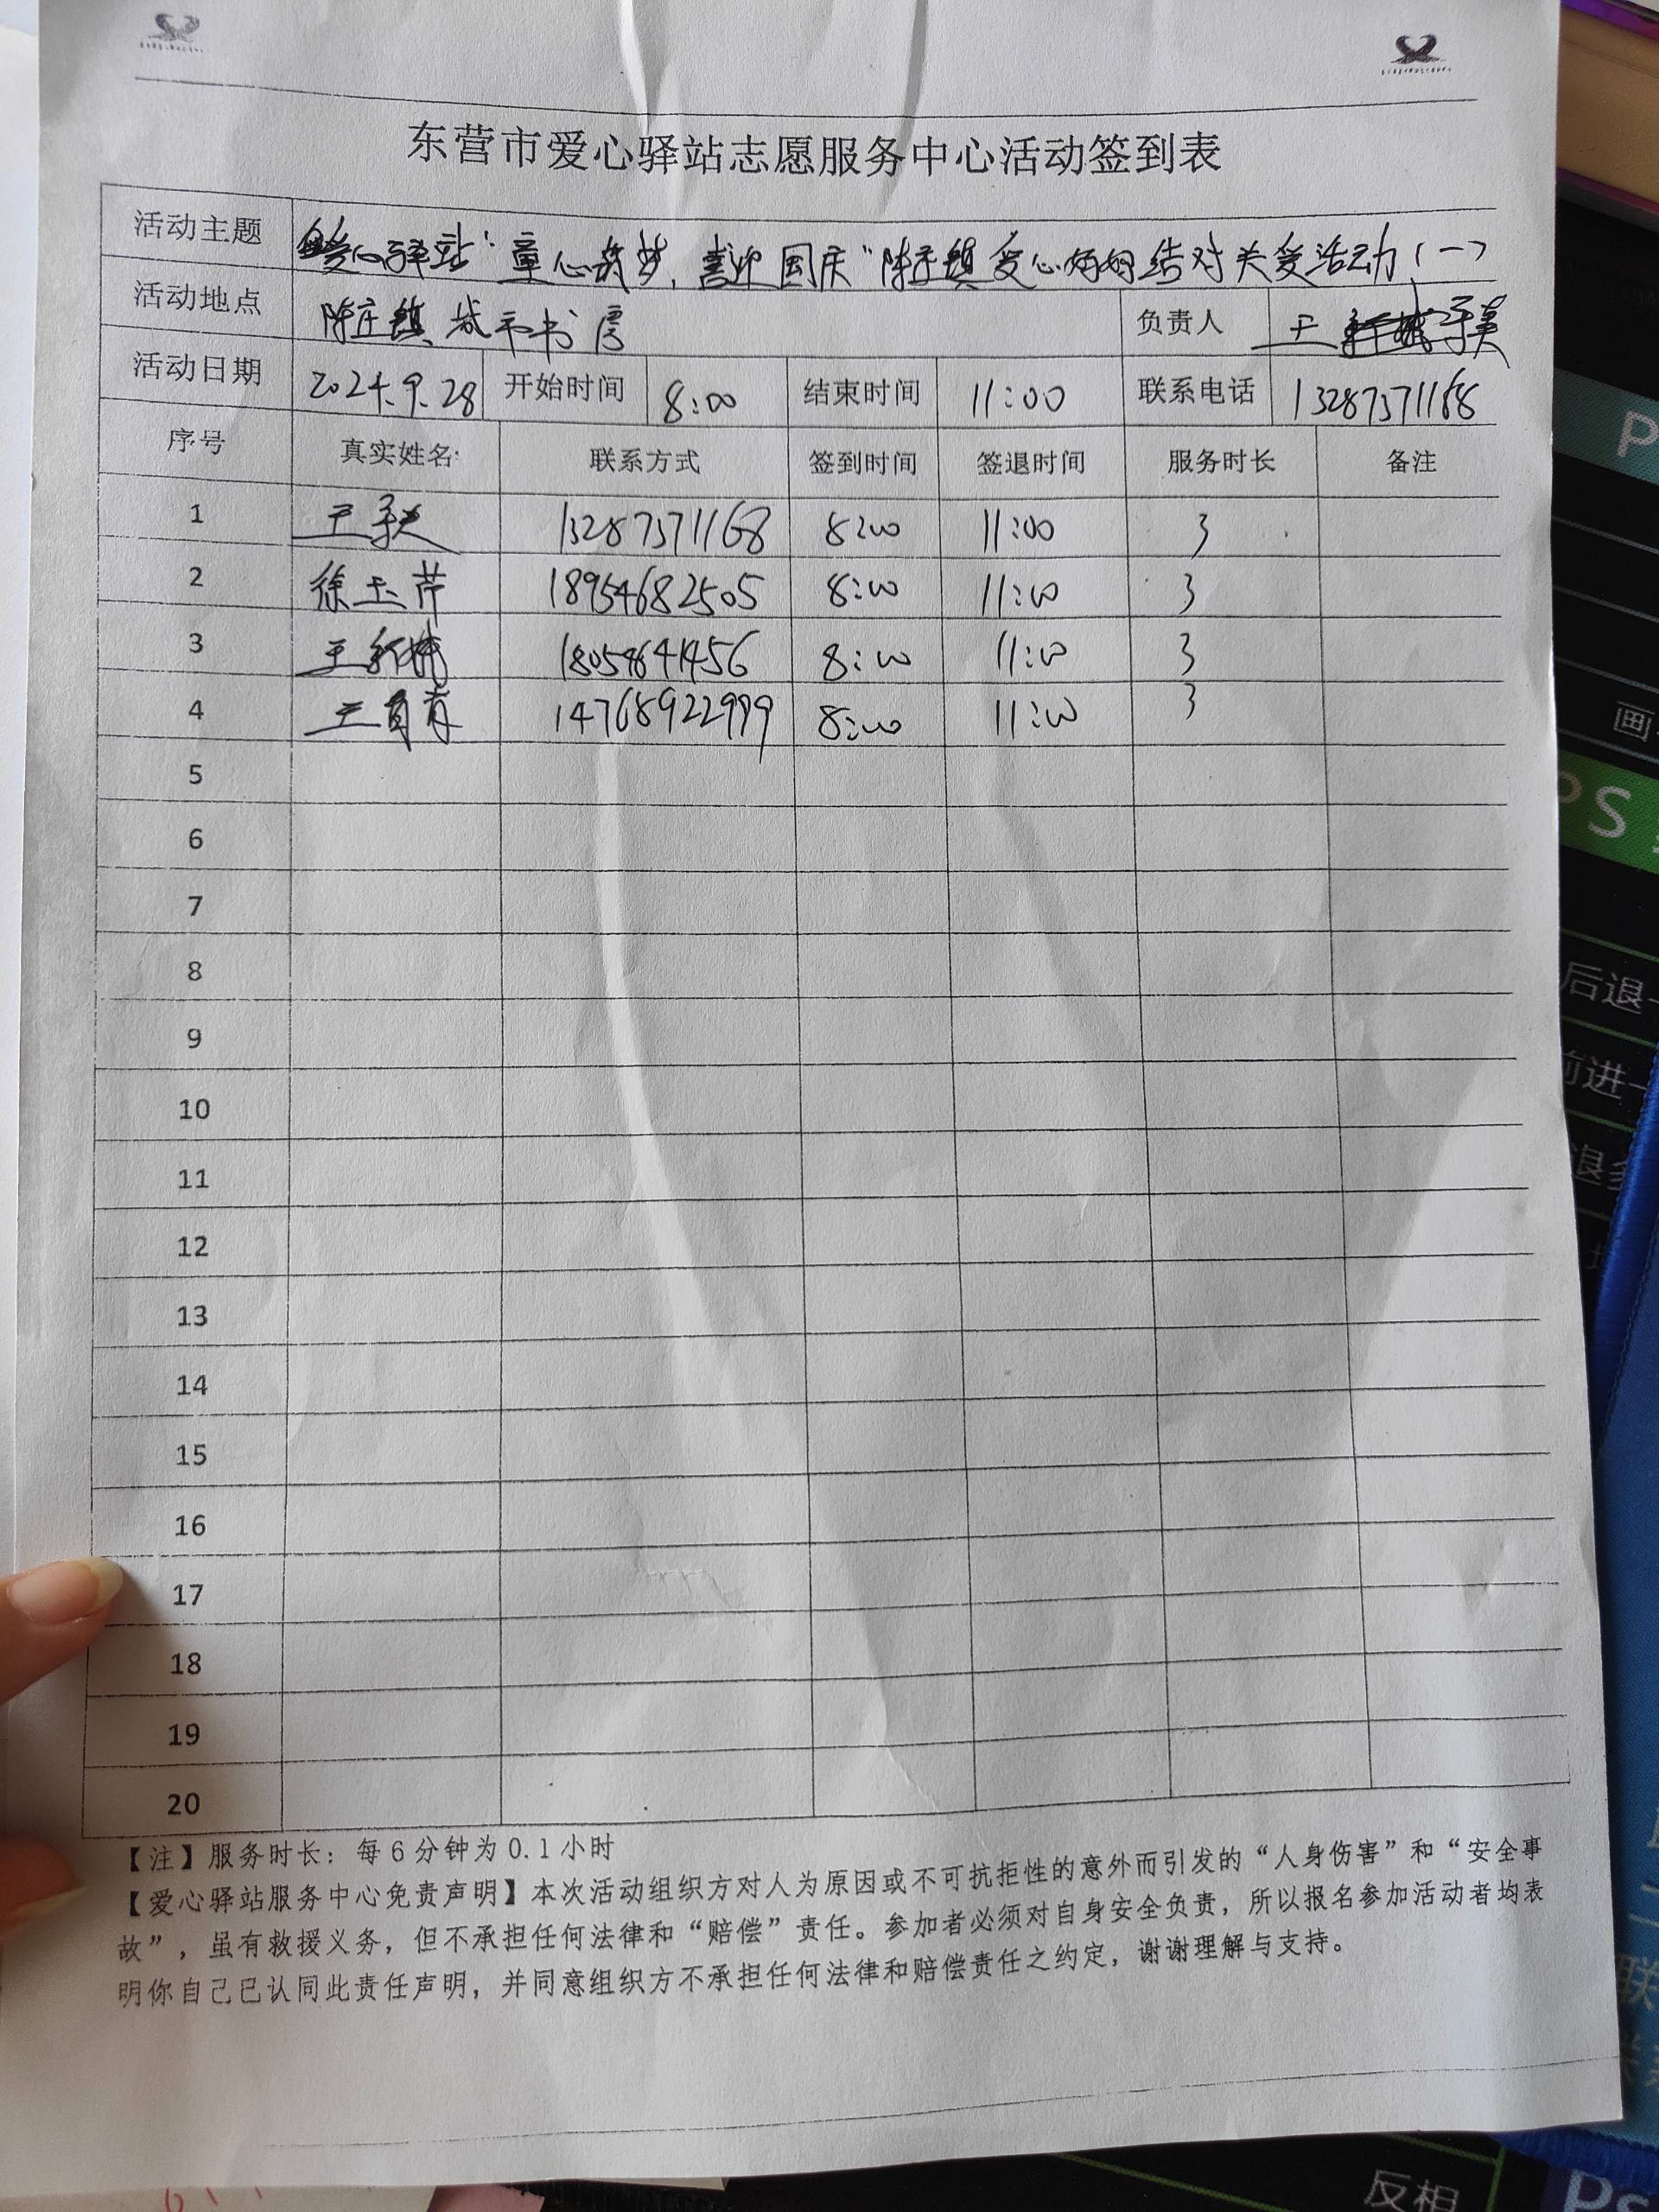 东营市爱心驿站志愿服务中心活动签到表
活动主题 爱心驿站“童心筑梦,喜迎国庆”陈庄镇爱心妈妈结对关爱活动(一)
活动地点 陈庄镇城市书房 负责人 王
活动日期 2024.9.28 开始时间 8:00 结束时间 11:00 联系电话 13287371168
序号 真实姓名 联系方式 签到时间 签退时间 服务时长 备注
1 王 13287371168 8:00 11:00 3
2 徐玉芹 18954682505 8:00 11:00 3
3 王 8:00 11:00 3
4 王 14768922999 8:00 11:00 3
5
6
7
8
9
10
11
12
13
14
15
16
17
18
19
20
【注】服务时长:每6分钟为0.1小时
【爱心驿站服务中心免责声明】本次活动组织方对人为原因或不可抗拒性的意外而引发的“人身伤害”和“安全事
故”,虽有救援义务,但不承担任何法律和“赔偿”责任。参加者必须对自身安全负责,所以报名参加活动者均表
明你自己已认同此责任声明,并同意组织方不承担任何法律和赔偿责任之约定,谢谢理解与支持。
P
画
PS
后退一
前进一
退多
联
反相
Ps